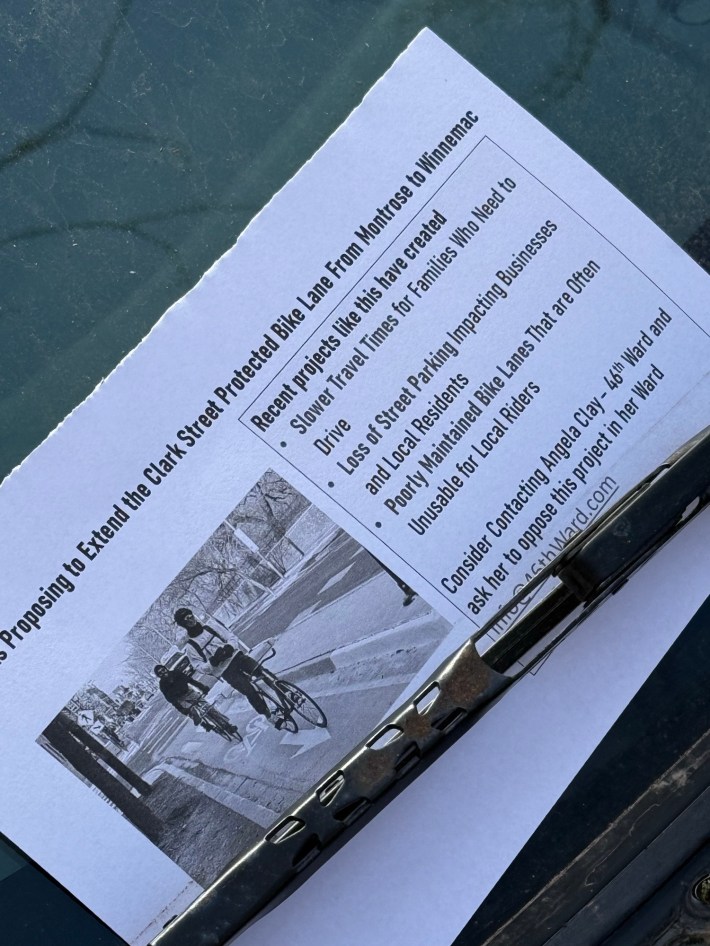 Proposing to Extend the Clark Street Protected Bike Lane From Montrose to Winnemac
Recent projects like this have created
• Slower Travel Times for Families Who Need to
Drive
• Loss of Street Parking Impacting Businesses
and Local Residents
• Poorly Maintained Bike Lanes That are Often
Unusable for Local Riders
Consider Contacting Angela Clay– 46th Ward and
ask her to oppose this project in her Ward